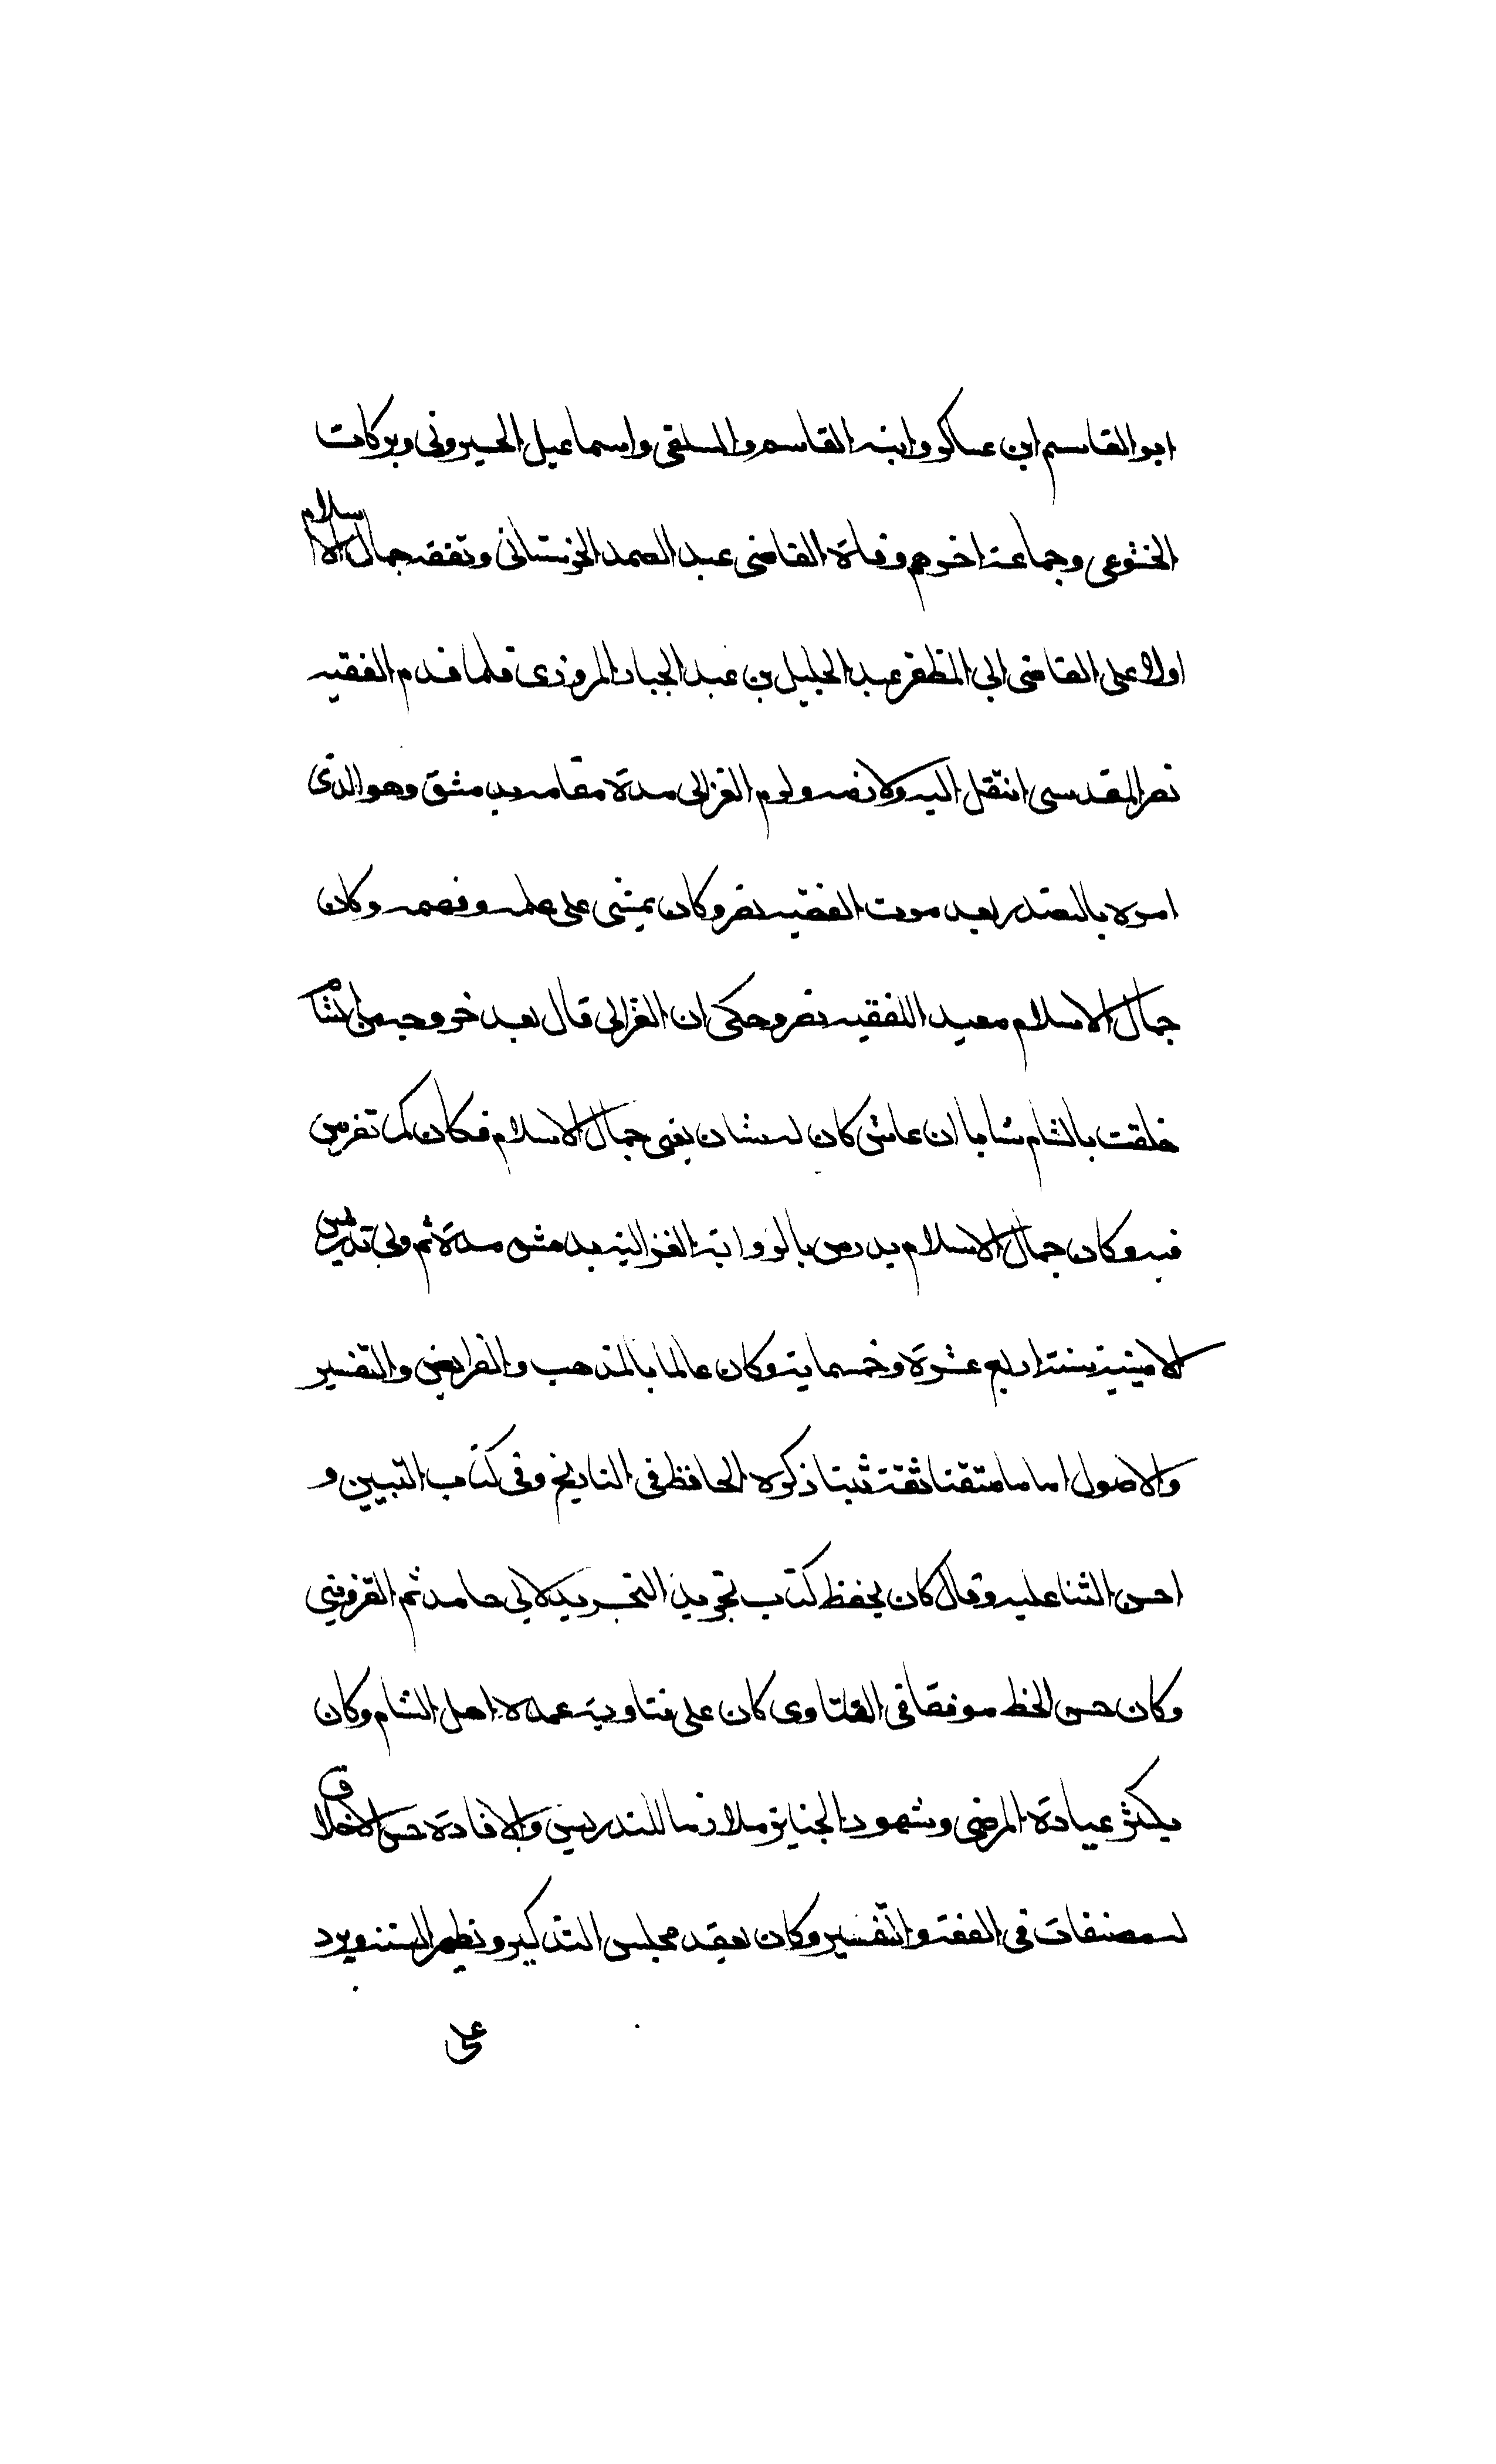 ابو القاسم ابن عساكر وابنه القاسم والسلفى واسماعيل الحيرونى وبركات
الخشوعى وجماعة اخرهم وفاة القاضى عبد الصمد الخرستانى وتفقه جمال الاسلام
اولا على القاضى ابى المظفر عبد الجليل بن عبد الجبار المروزى فلما قدم الفقيه
نصر المقدسى انتقل اليه ولازمه ولزم الغزالى مدة مقامه بدمشق وهو الذى
امره بالتصدر بعد موت الفقيه نصر وكان يمشى على علمه وفهمه وكان
جمال الاسلام معيد اللفقيه نصر وحكى ان الغزالى قال بعد خروجه من الشام
خلفت بالشام شابا ان عاش كان له شان يعنى جمال الاسلام فكان كما تفرس
فيه وكان جمال الاسلام يدرس بالزواية الغزالية بدمشق مدة ثم ولى تدريس
الامينية سنة اربع عشرة وخمسماية وكان عالما بالمذهب والفرايض والتفسير
والاصول اماما متقنا ثقة ثبتا ذكره الحافظ فى التاريخ وفى كتاب التبيين و
احسن الثنا عليه وقال كان يحفظ كتاب تجريد التجريد لابى حامد ثم القزوينى
وكان حسن الخط موفقا فى الفتاوى كان على فتاويه عمدة اهل الشام وكان
يكثر عيادة المرضى وشهود الجنايز ملازما للتدريس والافادة حسن الاخلاق
له مصنفات فى الفقه والتفسير وكان يعقد مجلس التذكير ويظهر السنه ويرد
على